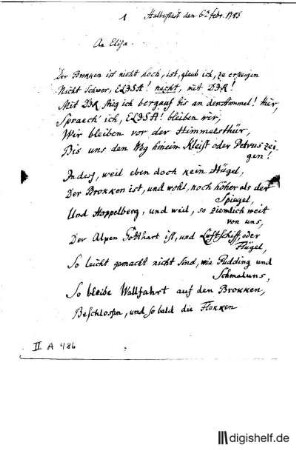 1
Halberstadt den 6ten Febr. 1785
An Elisa.
Der Brokken ist nicht hoch, ist, glaub ich, zu ersteigen
Nicht schwer, ELISA! nicht, mit DIR!
Mit DIR stieg ich bergauf bis an den Himmel! hier,
Sprach' ich, ELISA! bleiben wir,
Wir bleiben vor der Himmelsthür,
Bis uns den Weg hinein Kleist oder Petrus zei-
gen!
Indeß, weil eben doch kein Hügel,
Der Brokken ist, und wohl noch höher als der
Spiegel,
Und Hoppelberg, und weil, so ziemlich weit
von uns,
Der Alpen Gotthart ist, und Luftschiff oder
Flügel,
So leicht gemacht nicht sind, wie Pudding und
So bleibe Wallfahrt auf den Brokken,
Beschlossen, und so bald die Flokken
II A 486
digishelf.de